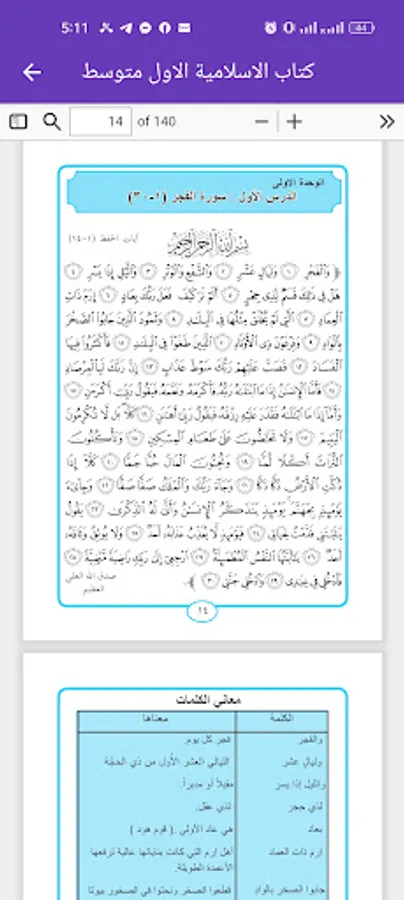 5:11
44
كتاب الاسلامية الاول متوسط
14 of 140
الوحدة الأولى
الدرس الأول : سورة الفجر (١-٣٠)
آيات الحفظ (١-١٤)
بِسْمِ اللَّهِ الرَّحْمَنِ الرَّحِيمِ
﴿ وَالْفَجْرِ ١ وَلَيَالٍ عَشْرٍ ٢ وَالشَّفْعِ وَالْوَتْرِ ٣ وَاللَّيْلِ إِذَا يَسْرِ ٤
هَلْ فِي ذَلِكَ قَسَمٌ لِّذِي حِجْرٍ ٥ أَلَمْ تَرَ كَيْفَ فَعَلَ رَبُّكَ بِعَادٍ ٦ إِرَمَ ذَاتِ
الْعِمَادِ ٧ الَّتِي لَمْ يُخْلَقْ مِثْلُهَا فِي الْبِلَادِ ٨ وَثَمُودَ الَّذِينَ جَابُوا الصَّخْرَ
بِالْوَادِ ٩ وَفِرْعَوْنَ ذِي الْأَوْتَادِ ١٠ الَّذِينَ طَغَوْا فِي الْبِلَادِ ١١ فَأَكْثَرُوا فِيهَا
الْفَسَادَ ١٢ فَصَبَّ عَلَيْهِمْ رَبُّكَ سَوْطَ عَذَابٍ ١٣ إِنَّ رَبَّكَ لَبِالْمِرْصَادِ
١٤ فَأَمَّا الْإِنْسَانُ إِذَا مَا ابْتَلَاهُ رَبُّهُ فَأَكْرَمَهُ وَنَعَّمَهُ فَيَقُولُ رَبِّي أَكْرَمَنِ ١٥
وَأَمَّا إِذَا مَا ابْتَلَاهُ فَقَدَرَ عَلَيْهِ رِزْقَهُ فَيَقُولُ رَبِّي أَهَانَنِ ١٦ كَلَّا بَل لَّا تُكْرِمُونَ
الْيَتِيمَ ١٧ وَلَا تَحَاضُّونَ عَلَى طَعَامِ الْمِسْكِينِ ١٨ وَتَأْكُلُونَ
التُّرَاثَ أَكْلًا لَّمًّا ١٩ وَتُحِبُّونَ الْمَالَ حُبًّا جَمًّا ٢٠ كَلَّا إِذَا
دُكَّتِ الْأَرْضُ دَكًّا دَكًّا ٢١ وَجَاءَ رَبُّكَ وَالْمَلَكُ صَفًّا صَفًّا ٢٢ وَجِيءَ
يَوْمَئِذٍ بِجَهَنَّمَ يَوْمَئِذٍ يَتَذَكَّرُ الْإِنْسَانُ وَأَنَّى لَهُ الذِّكْرَى ٢٣ يَقُولُ
يَا لَيْتَنِي قَدَّمْتُ لِحَيَاتِي ٢٤ فَيَوْمَئِذٍ لَّا يُعَذِّبُ عَذَابَهُ أَحَدٌ ٢٥ وَلَا يُوثِقُ وَثَاقَهُ
أَحَدٌ ٢٦ يَا أَيَّتُهَا النَّفْسُ الْمُطْمَئِنَّةُ ٢٧ ارْجِعِي إِلَى رَبِّكِ رَاضِيَةً مَّرْضِيَّةً ٢٨
فَادْخُلِي فِي عِبَادِي ٢٩ وَادْخُلِي جَنَّتِي ٣٠ ﴾. صدق الله العلي
العظيم
١٤
معاني الكلمات
الكلمة معناها
والفجر فجر كل يوم.
وليالٍ عشر الليالي العشر الأول من ذي الحجة
والليل إذا يسر مقبلاً أو مدبراً.
لذي حجر لذي عقل.
بعاد هي عاد الأولى .( قوم هود )
إرم ذات العماد أهل إرم التي كانت بناياتها عالية ترفعها
الأعمدة الطويلة.
جابوا الصخر بالوادِ قطعوا الصخر ونحتوا في الصخور بيوتا